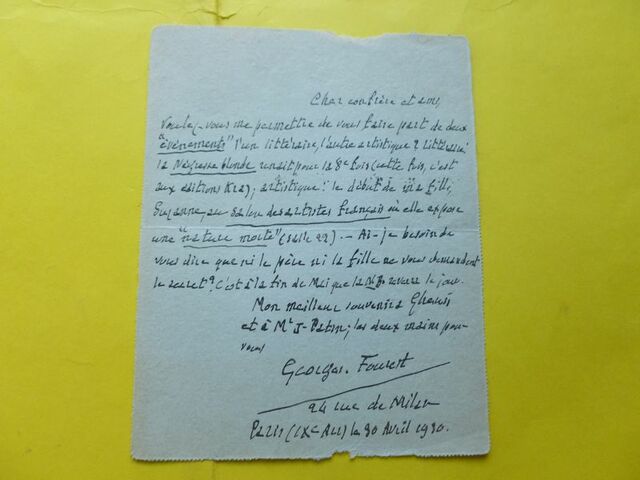 Cher confrère et ami,
Voulez-vous me permettre de vous faire part de deux
"évènements" l'un littéraire, l'autre artistique? Littéraire:
la Négresse blonde renaît pour la 8e fois (cette fois, c'est
aux éditions Kra); artistique: le début de ma fille,
Suzanne, au Salon des artistes français où elle expose
une "nature morte" (salle 22). — Ai-je besoin de
vous dire que ni le père ni la fille ne vous demandent
le secret? C'est à la fin de Mai que la N. B. reverra le jour.
Mon meilleur souvenir à Gheusi
et à Mr J- Patin; les deux mains pour
vous
Georges Fourest
24 rue de Milan
Paris (IXe Arr) le 30 Avril 1930.